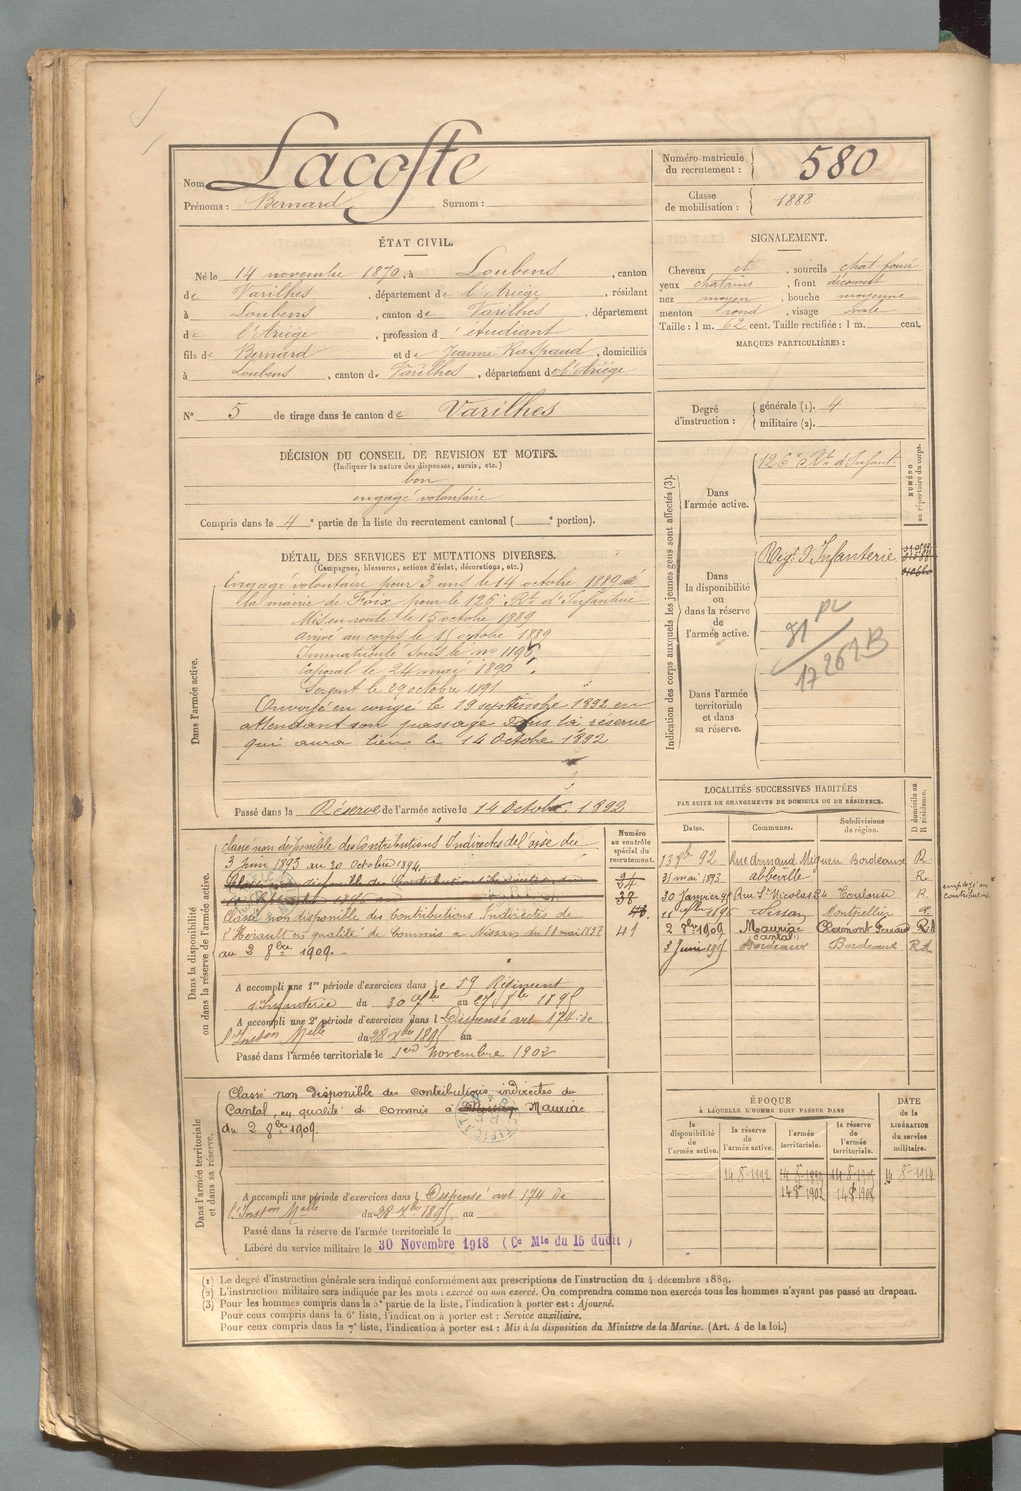 Nom Lacoste
Prénoms : Bernard Surnom :
Numéro matricule du recrutement : 580
Classe de mobilisation : 1888
ÉTAT CIVIL.
Né le 14 novembre 1870, à Loubens, canton
de Varilhes, département de l'Ariège, résidant
à Loubens, canton de Varilhes, département
de l'Ariège, profession d'étudiant
fils de Bernard et de Jeanne Raspaud, domiciliés
à Loubens, canton de Varilhes, département de l'Ariège
N° 5 de tirage dans le canton de Varilhes
SIGNALEMENT.
Cheveux et, sourcils chat. foncé
yeux chatains, front découvert
nez moyen, bouche moyenne
menton rond, visage ovale
Taille : 1 m. 62 cent. Taille rectifiée : 1 m. cent.
MARQUES PARTICULIÈRES :
Degré d'instruction : générale (1). 4
militaire (2).
DÉCISION DU CONSEIL DE REVISION ET MOTIFS.
(Indiquer la nature des dispenses, sursis, etc.)
bon
engagé volontaire
Compris dans la 4e partie de la liste du recrutement cantonal ( e portion).
DÉTAIL DES SERVICES ET MUTATIONS DIVERSES.
(Campagnes, blessures, actions d'éclat, décorations, etc.)
Dans l'armée active.
Engagé volontaire pour 3 ans le 14 octobre 1889 à
la mairie de Foix pour le 126e Rt d'Infanterie
Mis en route le 15 octobre 1889
Arrivé au corps le 15 octobre 1889
Immatriculé sous le no
Caporal le 24 mai 1890
Sergent le 29 octobre 1891
Envoyé en congé le 19 septembre 1892 en
attendant son passage dans la réserve
qui aura lieu le 14 Octobre 1892
Passé dans la Réserve de l'armée active le 14 Octobre 1892
Indication des corps auxquels les jeunes gens sont affectés (3).
NUMÉRO au répertoire du corps.
Dans l'armée active.
126e Rt d'Infant.
Dans la disponibilité ou dans la réserve de l'armée active.
Régt d'Infanterie
Dans l'armée territoriale et dans sa réserve.
Dans la disponibilité ou dans la réserve de l'armée active.
Numéro au contrôle spécial du recrutement.
Classé non disponible des Contributions Indirectes de l'oise du
3 juin 1893 au 30 Octobre 1894.
Classé non disponible des Contributions Indirectes de
l'Hérault en qualité de Commis à Nissan du 11 mai 1897
au 2 8bre 1909.
24
38
41
A accompli une 1re période d'exercices dans le 59 Régiment
d'Infanterie du 30 au 1895
A accompli une 2e période d'exercices dans l Dispensé art 174 de
l'Inston Melle du 28 Xbre 1895 au
Passé dans l'armée territoriale le 1er Novembre 1902
LOCALITÉS SUCCESSIVES HABITÉES
PAR SUITE DE CHANGEMENTS DE DOMICILE OU DE RÉSIDENCE.
Dates. Communes. Subdivisions de région. D domicile ou R résidence.
13 8bre 92 Rue Armand Miguen Bordeaux R.
31 mai 1893 abbeville R.
30 Janvier 95 Rue St Nicolas 24 Toulouse R.
11 1896 Nissan Montpellier R.
2 8bre 1909 Mauriac Cantal Clermont Ferrand
3 Juin 19 Bordeaux Bordeaux
employé aux contributions
Dans l'armée territoriale et dans sa réserve.
Classé non disponible des contributions indirectes du
Cantal, en qualité de commis à Mauriac
du 2 8bre 1909.
A accompli une période d'exercices dans l Dispensé art 174 de
l'Inston Melle du 28 Xbre 1895 au
Passé dans la réserve de l'armée territoriale le
Libéré du service militaire le 30 Novembre 1918 (Ce Mle du 15 dudit)
ÉPOQUE
À LAQUELLE L'HOMME DOIT PASSER DANS
la disponibilité de l'armée active. la réserve de l'armée active. l'armée territoriale. la réserve de l'armée territoriale.
DATE de la LIBÉRATION du service militaire.
14 8bre 1892
14 8bre 1902 14 8bre 1908
(1) Le degré d'instruction générale sera indiqué conformément aux prescriptions de l'instruction du 4 décembre 1889.
(2) L'instruction militaire sera indiquée par les mots : exercé ou non exercé. On comprendra comme non exercés tous les hommes n'ayant pas passé au drapeau.
(3) Pour les hommes compris dans la 5e partie de la liste, l'indication à porter est : Ajourné.
Pour ceux compris dans la 6e liste, l'indication à porter est : Service auxiliaire.
Pour ceux compris dans la 7e liste, l'indication à porter est : Mis à la disposition du Ministre de la Marine. (Art. 4 de la loi.)